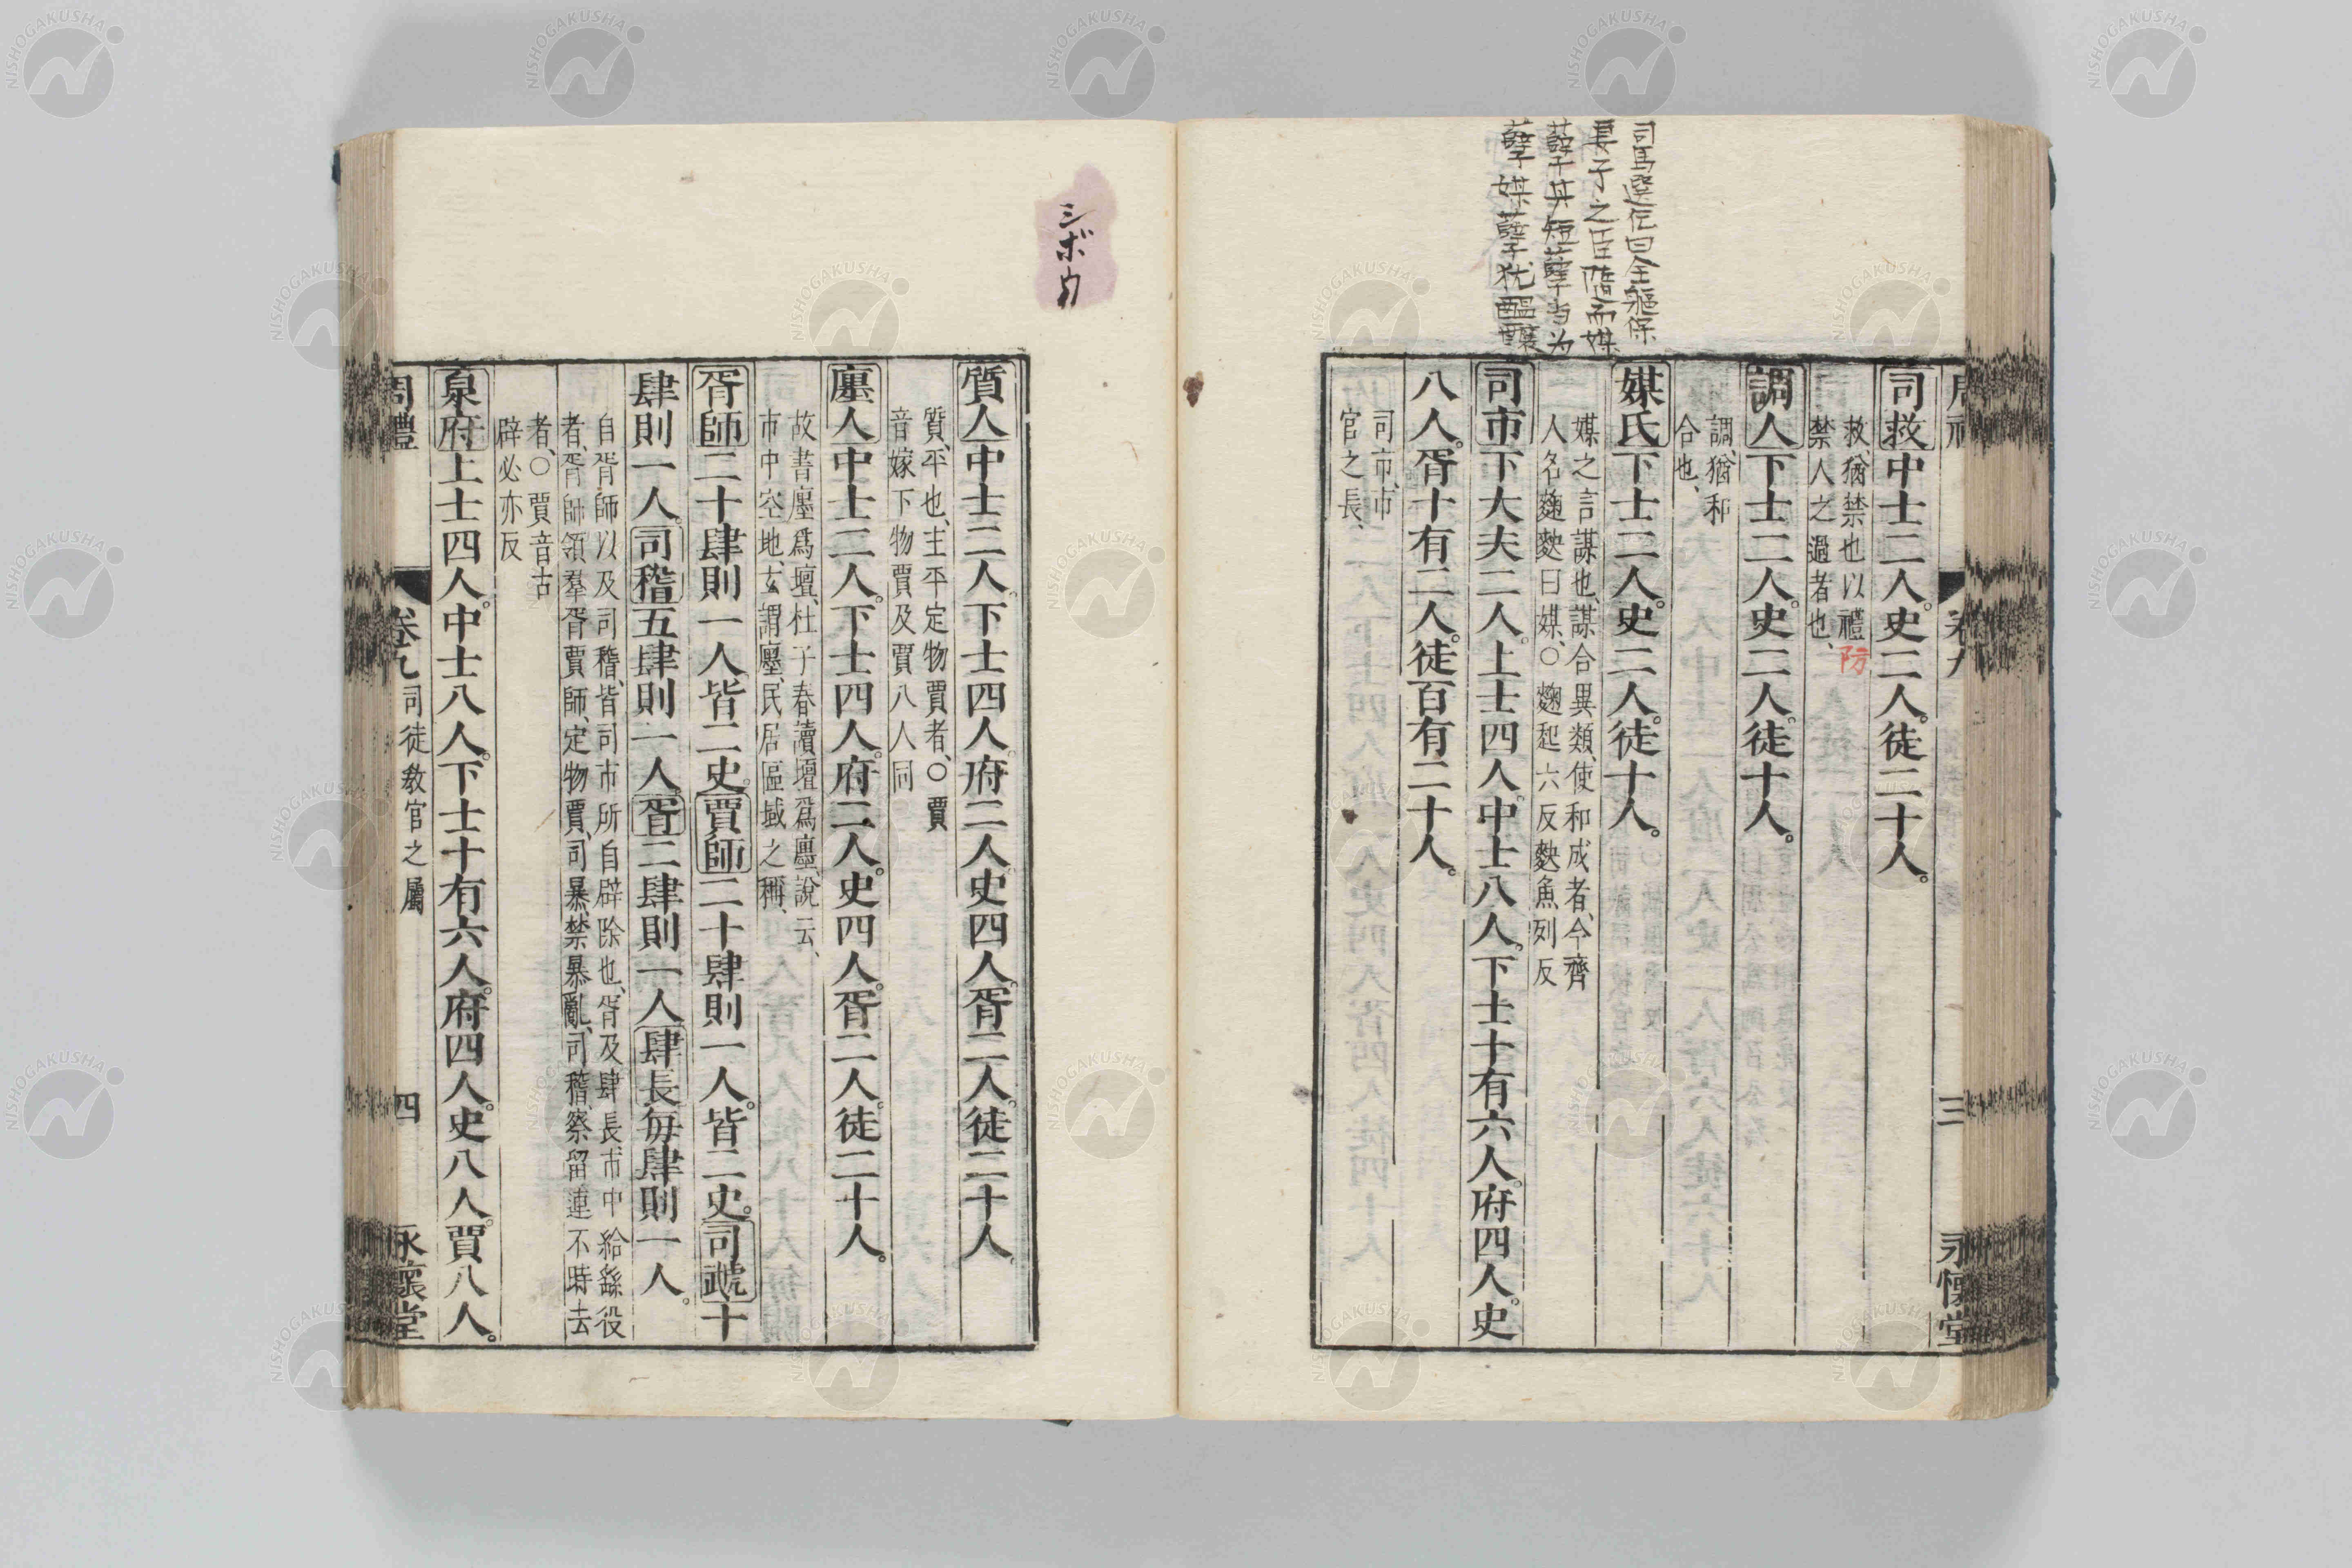 司馬遷伝曰全軀保
妻子之臣隨而媒
孽其短孽当为
孽媒孽犹醞釀
卷九
三
永懷堂
司救中士二人。史二人。徒二十人。
救、猶禁也以禮防
禁人之過者也、
調人下士二人。史二人。徒十人。
調、猶和
合也、
媒氏下士二人。史二人。徒十人。
媒之言謀也、謀合異類、使和成者、今齊
人名麴麩曰媒、○麴起六反麩魚列反
司市下大夫二人。上士四人。中士八人。下士十有六人。府四人。史
八人。胥十有二人。徒百有二十人。
司市、市
官之長、
シボウ
質人中士二人。下士四人。府二人。史四人。胥二人。徒二十人。
質、平也、主平定物賈者、○賈
音嫁下物賈及賈八人同
廛人中士二人。下士四人。府二人。史四人。胥二人。徒二十人。
故書廛爲壇、杜子春讀壇爲廛、說云、
市中空地、玄謂廛、民居區域之稱、
胥師二十肆則一人皆二史。賈師二十肆則一人。皆二史。司虣十
肆則一人。司稽五肆則一人。胥二肆則一人。肆長每肆則一人。
自胥師以及司稽、皆司市所自辟除也、胥及肆長、市中給繇役
者、胥師領羣胥賈師、定物賈、司暴、禁暴亂、司稽、察留連不時去
者、○賈音古
辟必亦反
泉府上士四人。中士八人。下士十有六人。府四人。史八人。賈八人。
周禮
卷九
司徒敎官之屬
四
永懷堂
NISHOGAKUSHA